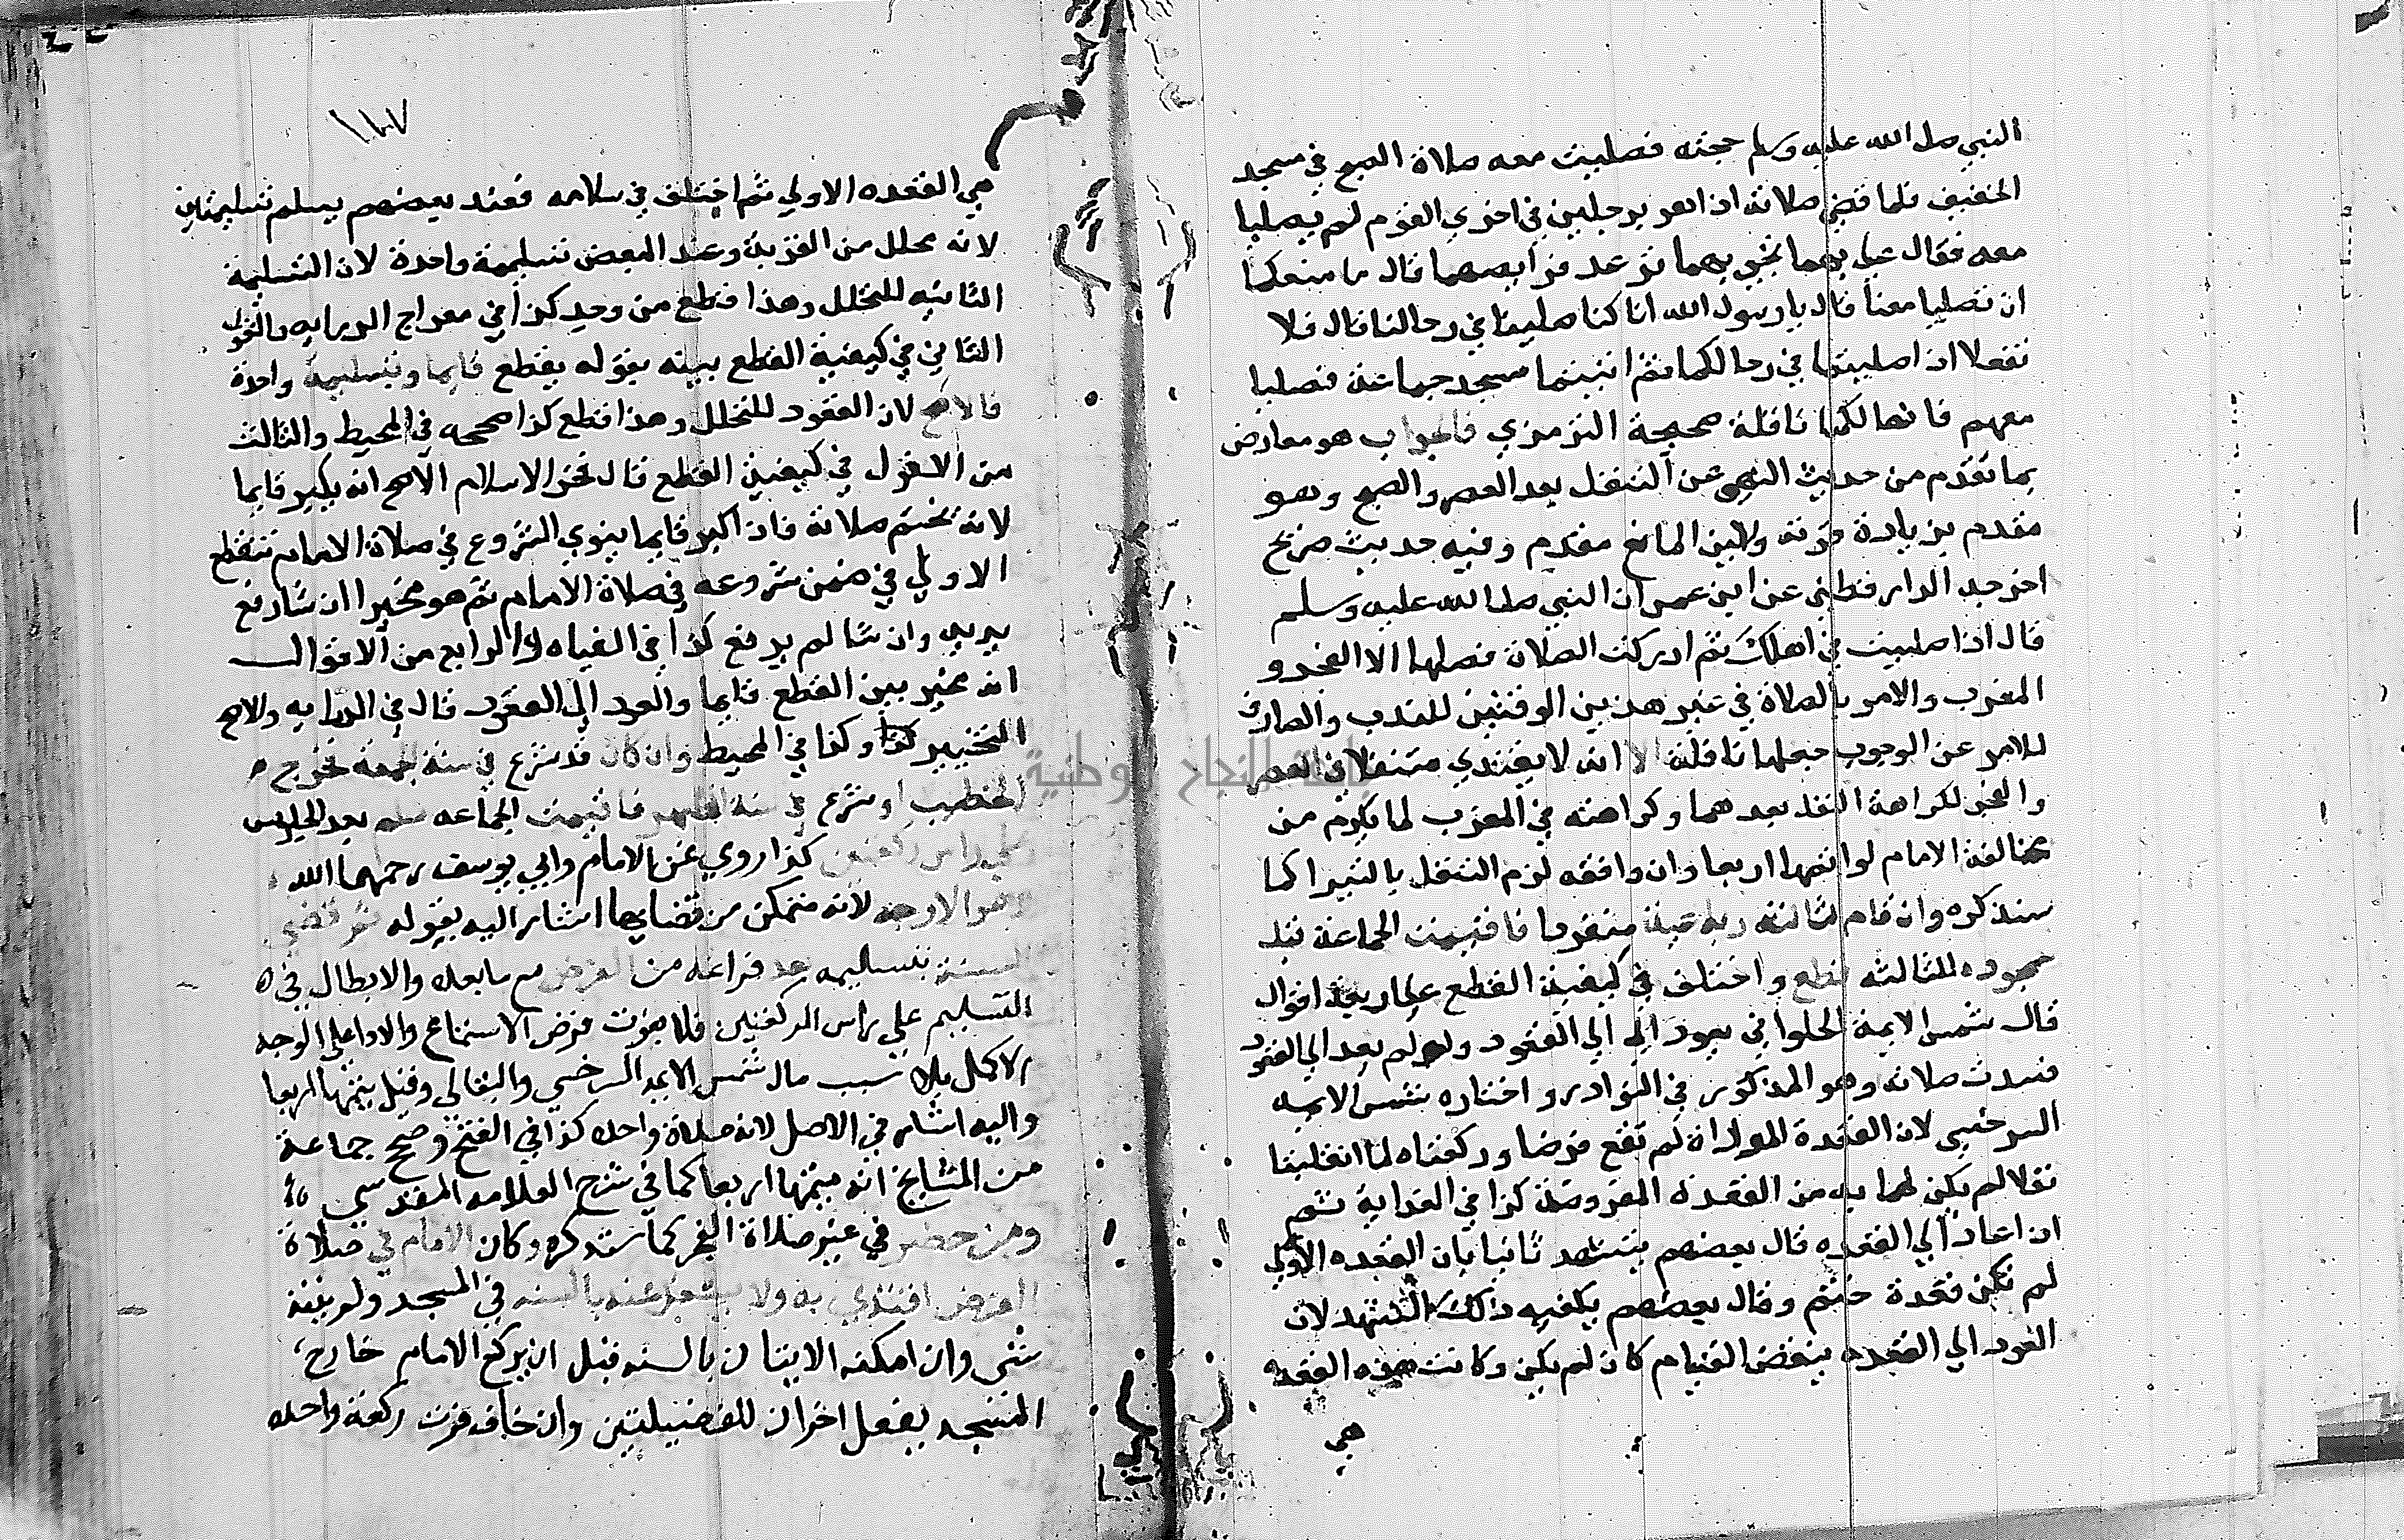 النبي صلى الله عليه وسلم حجته فصليت معه صلاة الصبح في مسجد
الخفيف فلما قضي صلاته اذا هو برجلين في اخري القوم لم يصليا
معه فقال علي بهما فجيي بهما ترعد فرايصهما قال ما منعكما
ان تصليا معنا قال يا رسول الله انا كنا صلينا في رحالنا قال فلا
تفعلا اذا صليتما في رحالكما ثم اتيتما مسجد جماعة فصليا
معهم فانها لكما نافلة صححه الترمزي فالجواب هو معارض
بما تقدم من حديث النهي عن التنفل بعد العصر والصبح وهو
مقدم بزيادة قوته ولان المانع مقدم وفيه حديث صريح
اخرجه الدارقطني عن ابن عمر ان النبي صلى الله عليه وسلم
قال اذا صليت في اهلك ثم ادركت الصلاة فصلها الا الفجر و
المغرب والامر بالصلاة في غير هذين الوقتين للندب والصارف
للامر عن الوجوب جعلها نافلة الا انه لا يقتدي متنفلا في العصر
والفجر لكراهة النفل بعدهما وكراهته في المغرب لما يلزم من
مخالفة الامام لو اتمها اربعا وان وافقه لزم التنفل بالبتيرا كما
سنذكره وان قام لثالثة رباعية منفردا فاقيمت الجماعة قبل
سجوده للثالثه قطع واختلف في كيفية القطع علي اربعة اقوال
قال شمس الايمة الحلواني يعود الي القعود ولو لم يعد الي القعود
فسدت صلاته وهو المذكور في النوادر واختاره شمس الايمه
السرخسي لان القعدة الاولي لم تقع فرضا وركعتاه لما انقلبتا
نفلا لم يكن لهما بد من القعدة المفروضة كذا في العناية ثم
ان اعاد الي القعده قال بعضهم يتشهد ثانيا بان القعده الاولي
لم تكن قعدة ختم وقال بعضهم يكفيه ذلك التشهد لان
العود الي القعده ينقض القيام كان لم يكن وكانت هذه القعده
هي
١١٧
هي القعده الاولي ثم اختلف في سلامه فعند بعضهم يسلم تسليمتين
لانه محلل من القربة وعند البعض تسليمة واحدة لان التسليمة
الثانيه للتحلل وهذا قطع من وجه كذا في معراج الدرايه والقول
الثاني في كيفية القطع بينه بقوله يقطع قايما وتسليمة واحدة
في الاصح لان القعود للتحلل وهذا قطع كذا صححه في المحيط والثالث
من الاقوال في كيفية القطع قال فخر الاسلام الاصح انه يكبر قايما
لانه يختم صلاته فاذا كبر قايما ينوي الشروع في صلاة الامام تنقطع
الاولي في ضمن شروعه في صلاة الامام ثم هو مخير ان شا رفع
يديه وان شا لم يرفع كذا في الرابع من الاقوال
انه مخير بين القطع قايما والعود الي القعود قال في الدرايه والاصح
التخيير وكذا في المحيط وان كان قد شرع في سنة الجمعة فخرج
الخطيب او شرع في سنة الظهر فاقيمت الجماعه سلم بعد الجلوس
علي راس ركعتين كذا روي عن الامام وابي يوسف رحمهما الله
وهو الاوجه لانه متمكن من قضايها اشار اليه بقوله ثم قضي
السنة بتسليمه بعد فراغه من الفرض مع مابعده والابطال في
التسليم علي راس الركعتين فلا يفوت فرض الاستماع والادا علي الوجه
الاكمل بلا سبب مال شمس الايمه السرخسي والبقالي وقيل يتمها اربعا
واليه اشار في الاصل لانها صلاة واحده كذا في الفتح وصحح جماعة
من المشايخ انه يتمها اربعا كما في شرح العلامه المقدسي
ومن حضر في غير صلاة الفجر كما سنذكره وكان الامام في صلاة
الفرض اقتدي به ولا يشتغل عنه بالسنه في المسجد ولو بيته
شي وان امكنه الاتيان بالسنه قبل ان يركع الامام خارج
المسجد يفعل احرازا للفضيلتين وان خاف فوت ركعة واحده